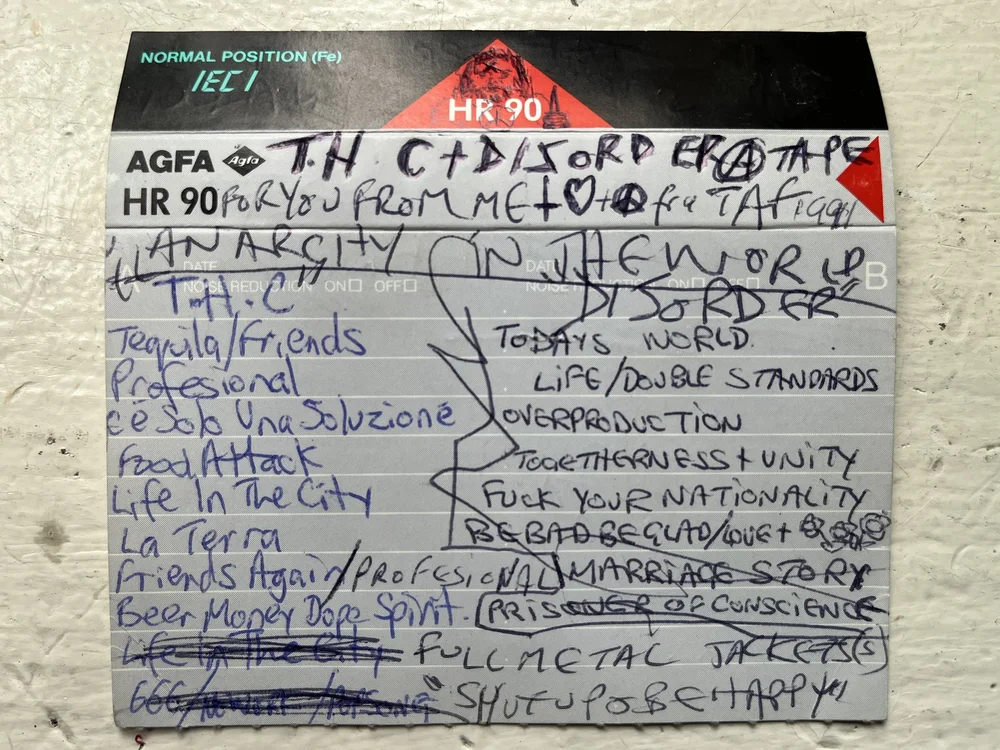 NORMAL POSITION (Fe)
IEC I
HR 90
AGFA Agfa T.H C + DISORDER Ⓐ TAPE
HR 90 FOR YOU FROM ME + ♡ + Ⓐ fra TAF 1991
ANARCITY IN THE WORLD
A DATE DATE B
NOISE REDUCTION ON OFF NOISE REDUCTION ON OFF
T.H.C" DISORDER"
Tequila/Friends TODAYS WORLD
Profesional LIFE/DOUBLE STANDARDS
cé Solo Una Soluzioné OVERPRODUCTION
Food Attack TOGETHERNESS + UNITY
Life In The City FUCK YOUR NATIONALITY
La Terra BE BAD BE GLAD/LOVE +
Friends Again/PROFESIONAL MARRIAGE STORY
Beer Money Dope Spirit. PRISONER OF CONSCIENCE
Life In The City FULL METAL JACKETS(S)
666/ /POPSONG "SHUT UP BE HAPPY"